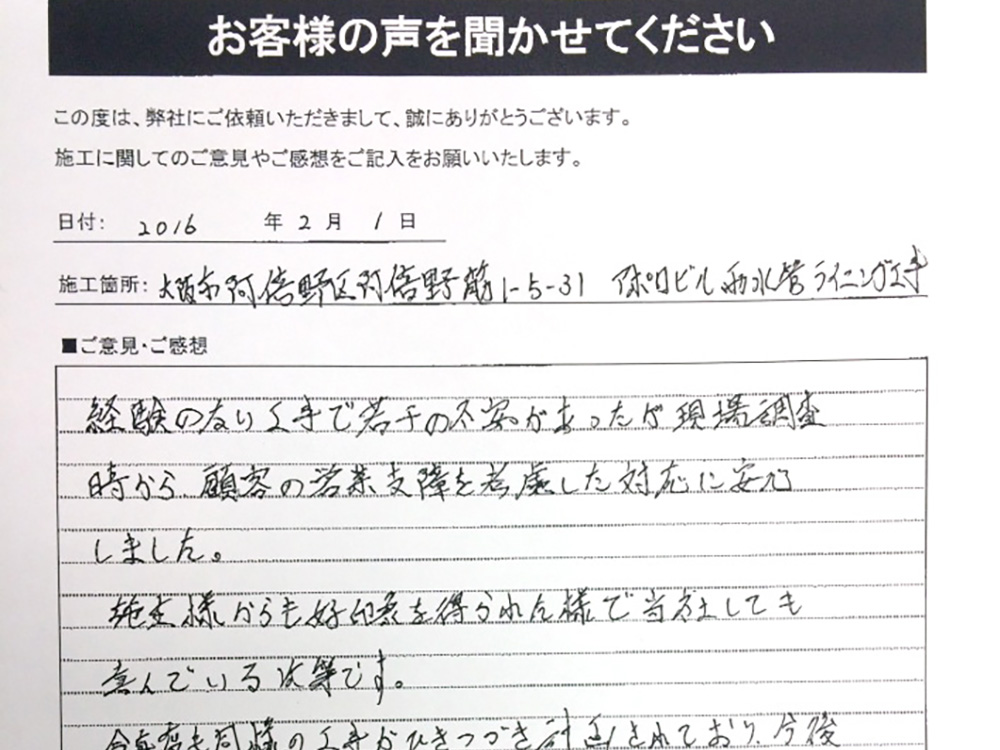 お客様の声を聞かせてください
この度は、弊社にご依頼いただきまして、誠にありがとうございます。
施工に関してのご意見やご感想をご記入をお願いいたします。
日付: 2016 年 2 月 1 日
施工箇所: 大阪市阿倍野区阿倍野筋1-5-31 アポロビル 雨水管ライニング工事
■ご意見・ご感想
経験のない工事で若干の不安があったが現場調査
時から、顧客の営業支障を考慮した対応に安心
しました。
施主様からも好印象を得られた様で当社しても
喜んでいる次第です。
今年度も同様の工事がひきつづき計画されており、今後